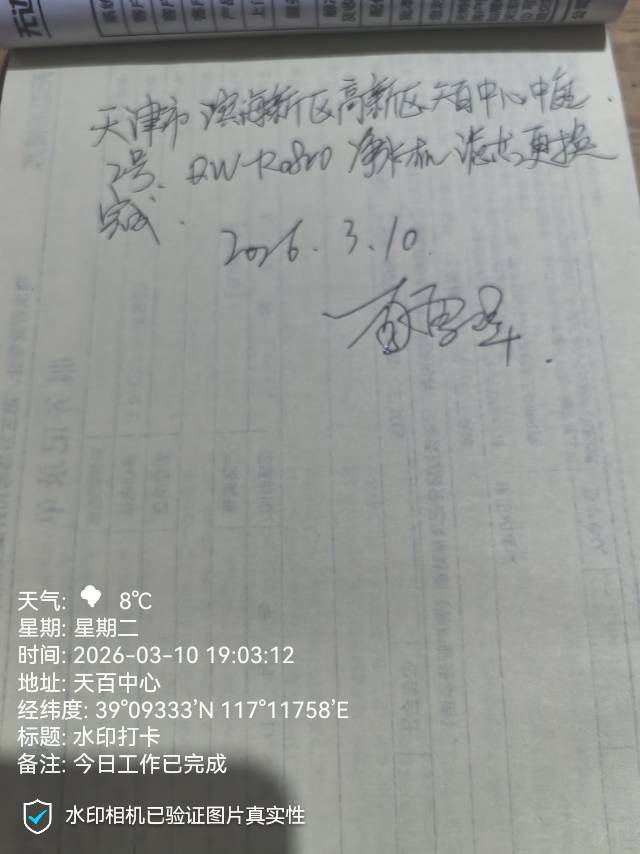 天津市滨海新区高新区天百中心中庭.
2号、QW-R0820 净水机 滤芯更换
完成.
2026.3.10.
天气: 8℃
星期: 星期二
时间: 2026-03-10 19:03:12
地址: 天百中心
经纬度: 39°09333’N 117°11758’E
标题: 水印打卡
备注: 今日工作已完成
水印相机已验证图片真实性